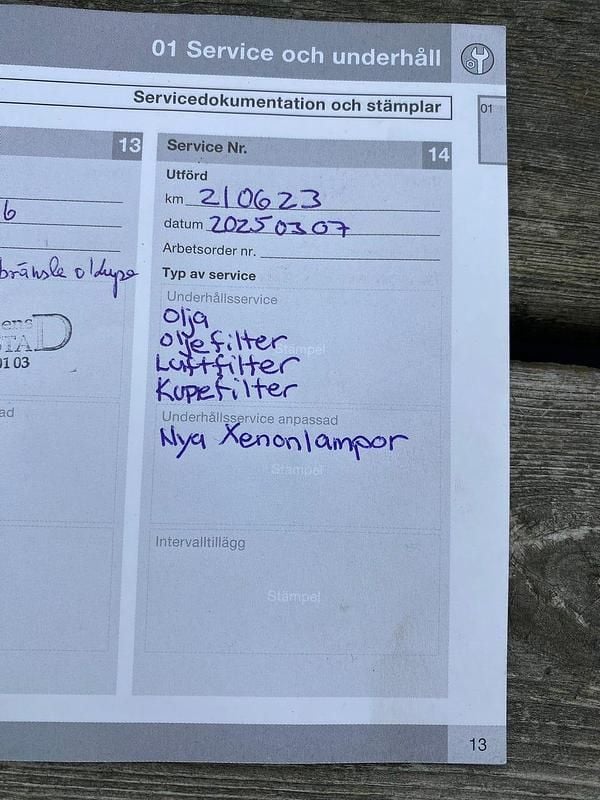 01 Service och underhåll
Servicedokumentation och stämplar
01
13
6
bränsle o kupe
ens D
STA
01 03
ad
Service Nr.
14
Utförd
km 210623
datum 20250307
Arbetsorder nr.
Typ av service
Underhållsservice
Olja
Oljefilter
Stämpel
Luftfilter
Kupefilter
Underhållsservice anpassad
Nya Xenonlampor
Stämpel
Intervalltillägg
Stämpel
13